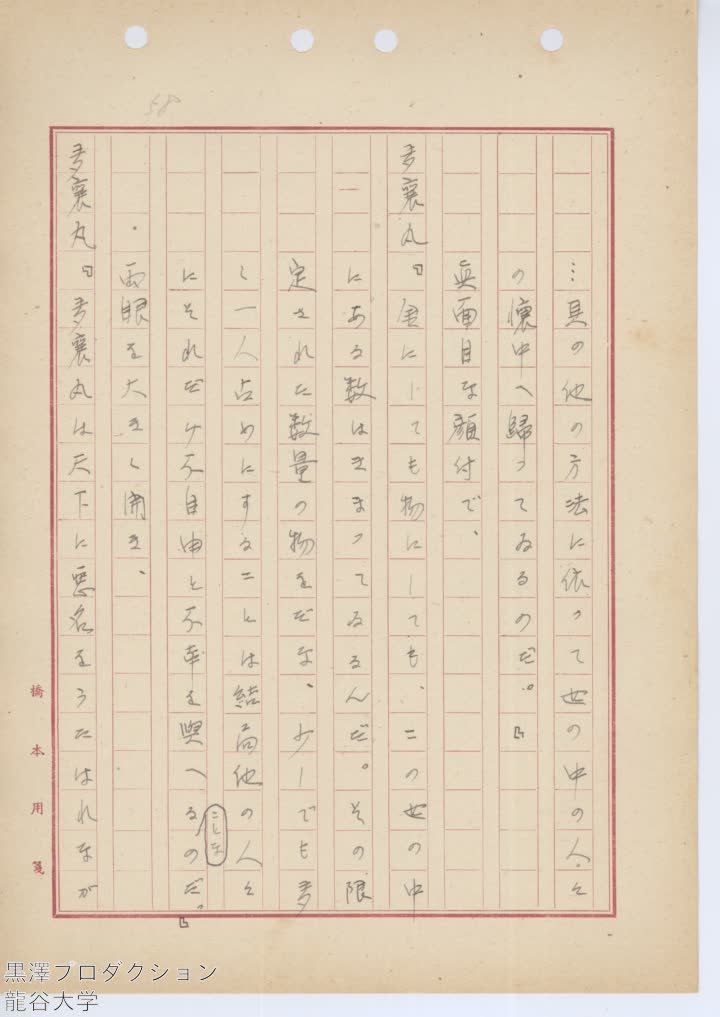 58
…其の他の方法に依って世の中の人々
の懐中へ歸ってゐるのだ。』
眞面目な顔付で、
多襄丸『金にしても物にしても、この世の中
にある数はきまってゐるんだ。その限
定された数量の物をだな、少しでも多
く一人占めにすることは結局他の人々
にそれだけ不自由と不幸を與へる
ことな
のだ。』
両眼を大きく開き、
多襄丸『多襄丸は天下に悪名をうたはれなが
橋本用箋
黒澤プロダクション
龍谷大学